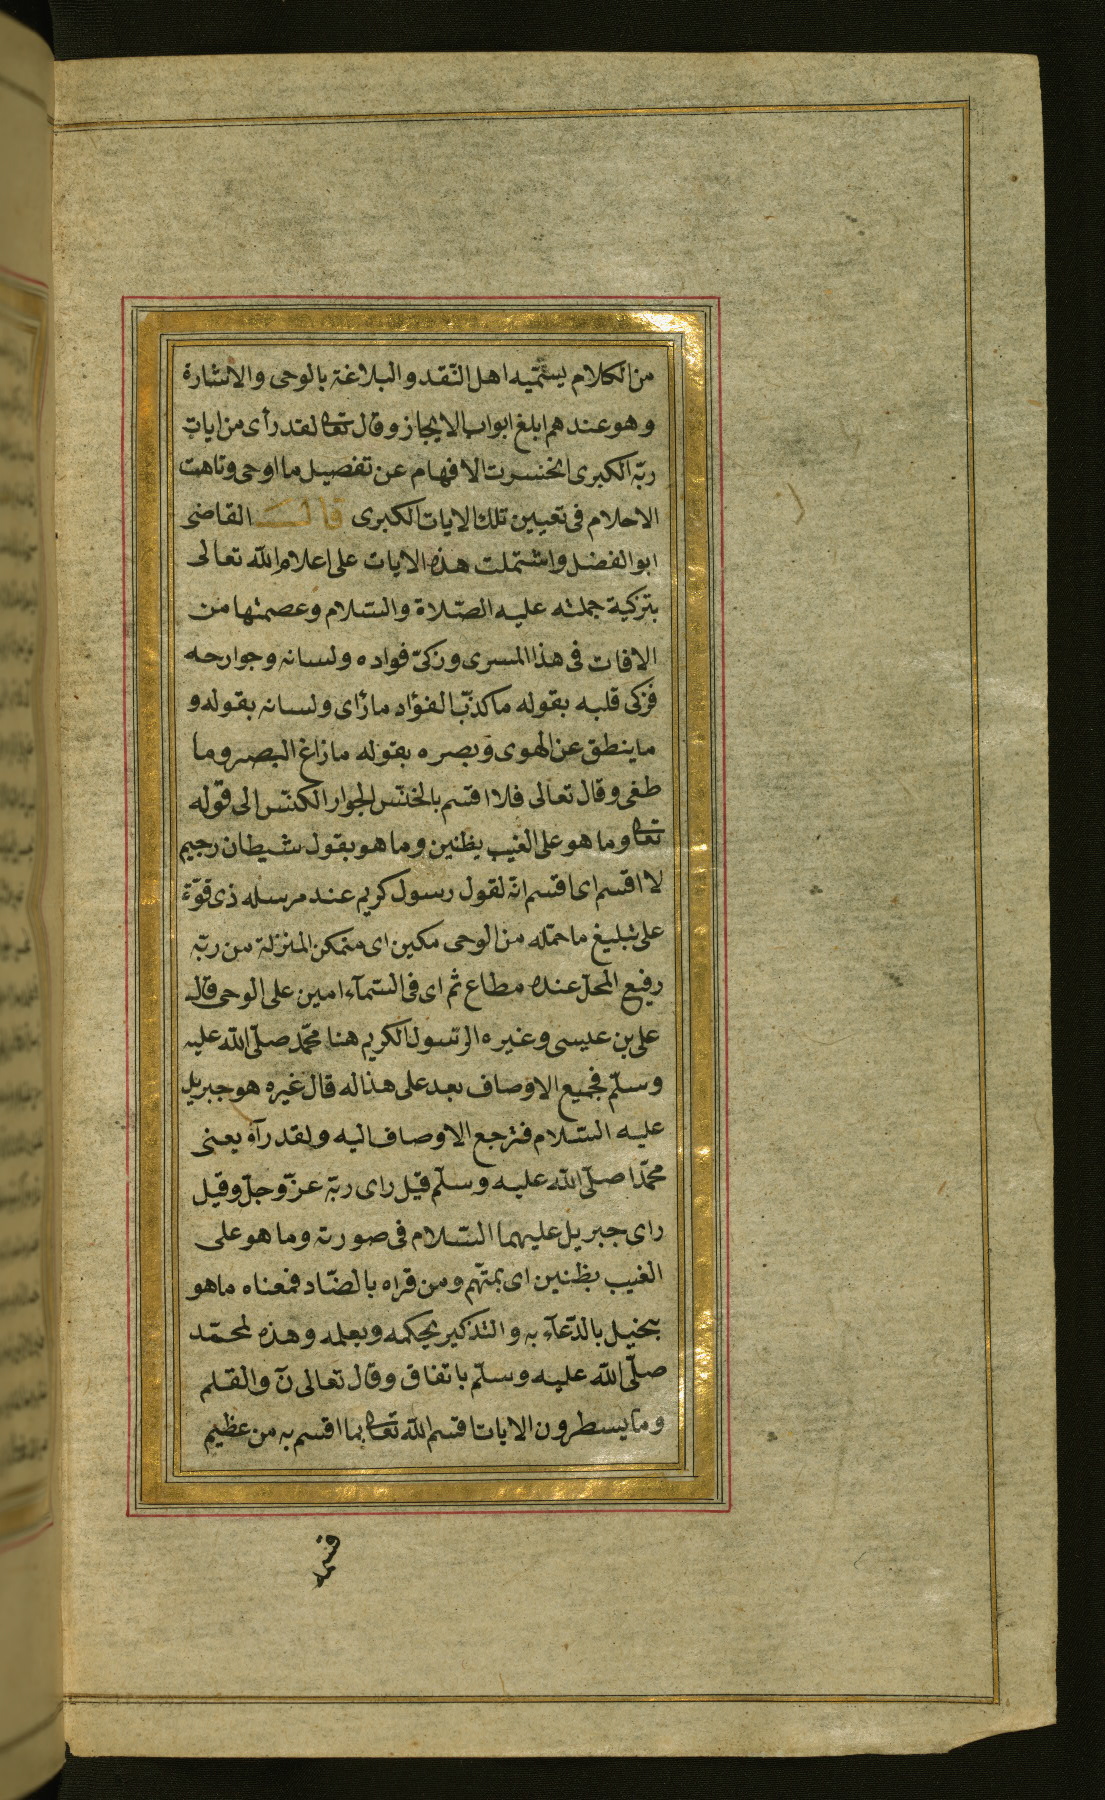 من الكلام يسمّيه اهل النّقد والبلاغة بالوحى والاشارة
وهو عندهم ابلغ ابواب الايجاز وقال تعا لقد رأى من ايات
ربّه الكبرى انخنسرت الافهام عن تفصيل ما اوحى وتاهت
الاحلام فى تعيين تلك الايات الكبرى قال القاضى
ابو الفضل واشتملت هذه الايات على اعلام الله تعالى
بتزكية جملته عليه الصّلاة والسّلام وعصمتها من
الافات فى هذا المسرى وزكىّ فواده ولسانه وجوارحه
فزكى قلبه بقوله ما كذّب الفؤاد ما رأى ولسانه بقوله و
ما ينطق عن الهوى وبصره بقوله ما زاغ البصر وما
طغى وقال تعالى فلا اقسم بالخنّس الجوار الكنّس الى قوله
تعا وما هو على الغيب بظنين وما هو بقول شيطان رجيم
لا اقسم اى اقسم انّه لقول رسول كريم عند مرسله ذى قوّة
على تبليغ ما حمّله من الوحى مكين اى متمكن المنزلة من ربّه
رفيع المحلّ عنده مطاع ثم اى فى السّمآء امين على الوحى قال
على بن عيسى وغيره الرّسول الكريم هنا محمّد صلّى الله عليه
وسلّم فجميع الاوصاف بعد على هذا له قال غيره هو جبريل
عليه السّلام فترجع الاوصاف اليه ولقد رآه يعنى
محمّدا صلّى الله عليه وسلّم قيل راى ربّه عزّ وجلّ وقيل
راى جبريل عليهما السّلام فى صورته وما هو على
الغيب بظنين اى بمتّهم ومن قراه بالضّاد فمعناه ما هو
بخيل بالدّعآء به والتذكير بحكمه وبعلمه وهذه لمحمّد
صلّى الله عليه وسلّم باتفاق وقال تعالى نٓ والقلم
وما يسطرون الايات اقسم الله تعا بما اقسم به من عظيم
قسمه